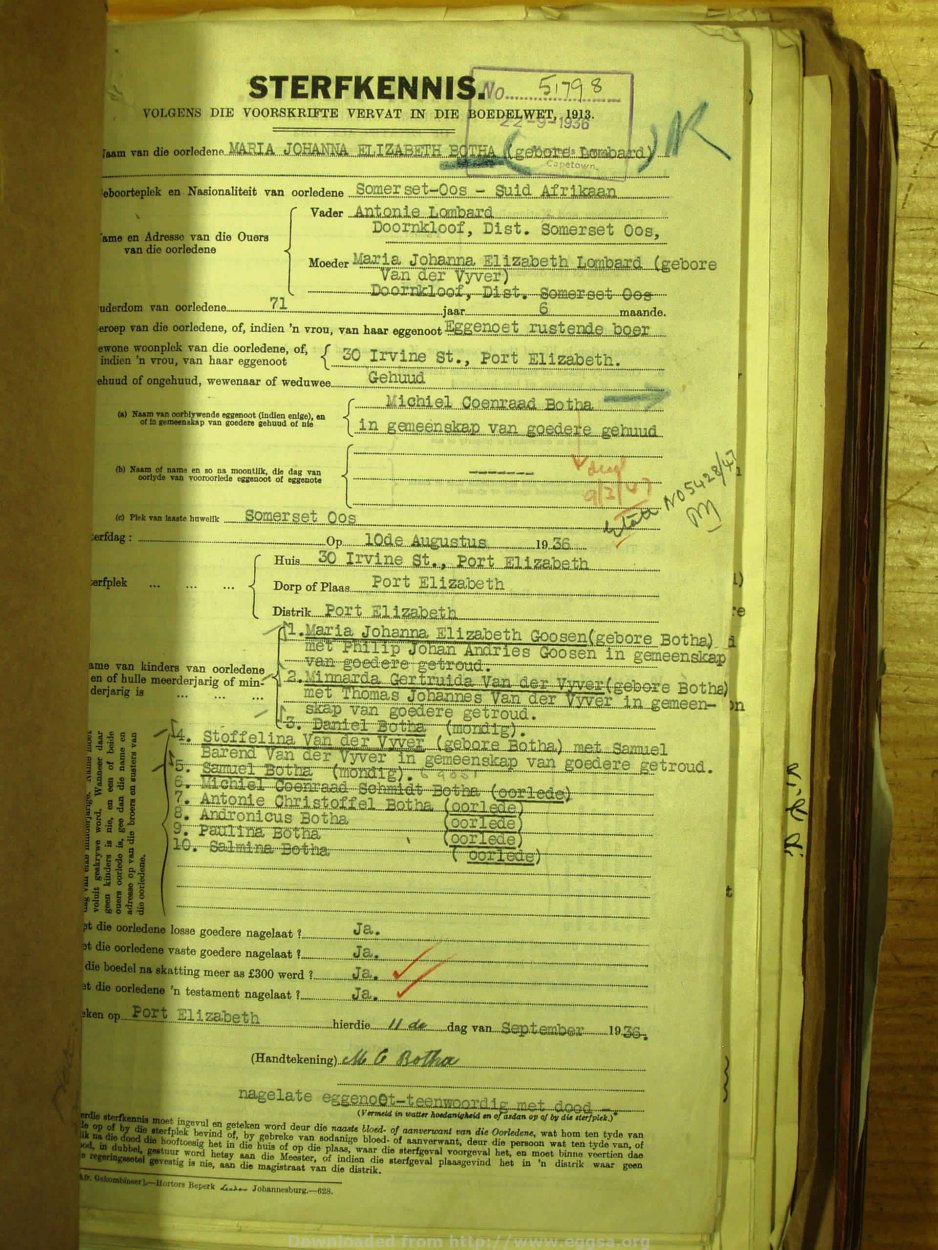 STERFKENNIS.
No. 51798
VOLGENS DIE VOORSKRIFTE VERVAT IN DIE BOEDELWET, 1913.
22-9-1936
Naam van die oorledene MARIA JOHANNA ELIZABETH BOTHA (gebore Lombard)
Capetown
eboorteplek en Nasionaliteit van oorledene Somerset-Oos - Suid Afrikaan
Vader Antonie Lombard
Doornkloof, Dist. Somerset Oos,
ame en Adresse van die Ouers
van die oorledene
Moeder Maria Johanna Elizabeth Lombard (gebore
Van der Vyver)
Doornkloof, Dist. Somerset Oos
uderdom van oorledene 71 jaar 6 maande.
eroep van die oorledene, of, indien 'n vrou, van haar eggenoot Eggenoet rustende boer
ewone woonplek van die oorledene, of,
indien 'n vrou, van haar eggenoot
30 Irvine St., Port Elizabeth.
ehuud of ongehuud, wewenaar of weduwee Gehuud
(a) Naam van oorblywende eggenoot (indien enige), en
of in gemeenskap van goedere gehuud of nie
Michiel Coenraad Botha
in gemeenskap van goedere gehuud
(b) Naam of name en so na moontlik, die dag van
oorlyde van vooroorlede eggenoot of eggenote
9/2/47
No 5428/47
(c) Plek van laaste huwelik Somerset Oos
terfdag : Op 10de Augustus 1936
Huis 30 Irvine St., Port Elizabeth
terfplek ... ... ... Dorp of Plaas Port Elizabeth
Distrik Port Elizabeth
1. Maria Johanna Elizabeth Goosen(gebore Botha)
met Philip Johan Andries Goosen in gemeenskap
van goedere getroud.
ame van kinders van oorledene
en of hulle meerderjarig of min-
derjarig is ... ... ...
2. Minnarda Gertruida Van der Vyver(gebore Botha)
met Thomas Johannes Van der Vyver in gemeen-
skap van goedere getroud.
3. Daniel Botha (mondig).
4. Stoffelina Van der Vyver (gebore Botha) met Samuel
Barend Van der Vyver in gemeenskap van goedere getroud.
5. Samuel Botha (mondig).
6. Michiel Coenraad Schmidt Botha (oorlede)
7. Antonie Christoffel Botha (oorlede)
8. Andronicus Botha (oorlede)
9. Paulina Botha (oorlede)
10. Salmina Botha (oorlede)
voluit geskrywe word. Wanneer daar
geen kinders is nie, en een of beide
ouers oorlede is, gee dan die name en
adresse op van die broers en susters van
die oorledene.
et die oorledene losse goedere nagelaat ? Ja.
et die oorledene vaste goedere nagelaat ? Ja.
die boedel na skatting meer as £300 werd ? Ja.
et die oorledene 'n testament nagelaat ? Ja.
eken op Port Elizabeth hierdie 11 de dag van September 1936.
(Handtekening) M C Botha
nagelate eggenoot-teenwoordig met dood -
(Vermeld in watter hoedanigheid en of asdan op of by die sterfplek.)
erdie sterfkennis moet ingevul en geteken word deur die naaste bloed- of aanverwant van die Oorledene, wat hom ten tyde van
le op of by die sterfplek bevind of, by gebreke van sodanige bloed- of aanverwant, deur die persoon wat ten tyde van, of
lik na die dood die hooftoesig het in die huis of op die plaas, waar die sterfgeval voorgeval het, en moet binne veertien dae
ood, in dubbel, gestuur word hetsy aan die Meester, of indien die sterfgeval plaasgevind het in 'n distrik waar geen
e regeringssetel gevestig is nie, aan die magistraat van die distrik.
Hortors Beperk Johannesburg.—628.
Downloaded from http://www.eggsa.org